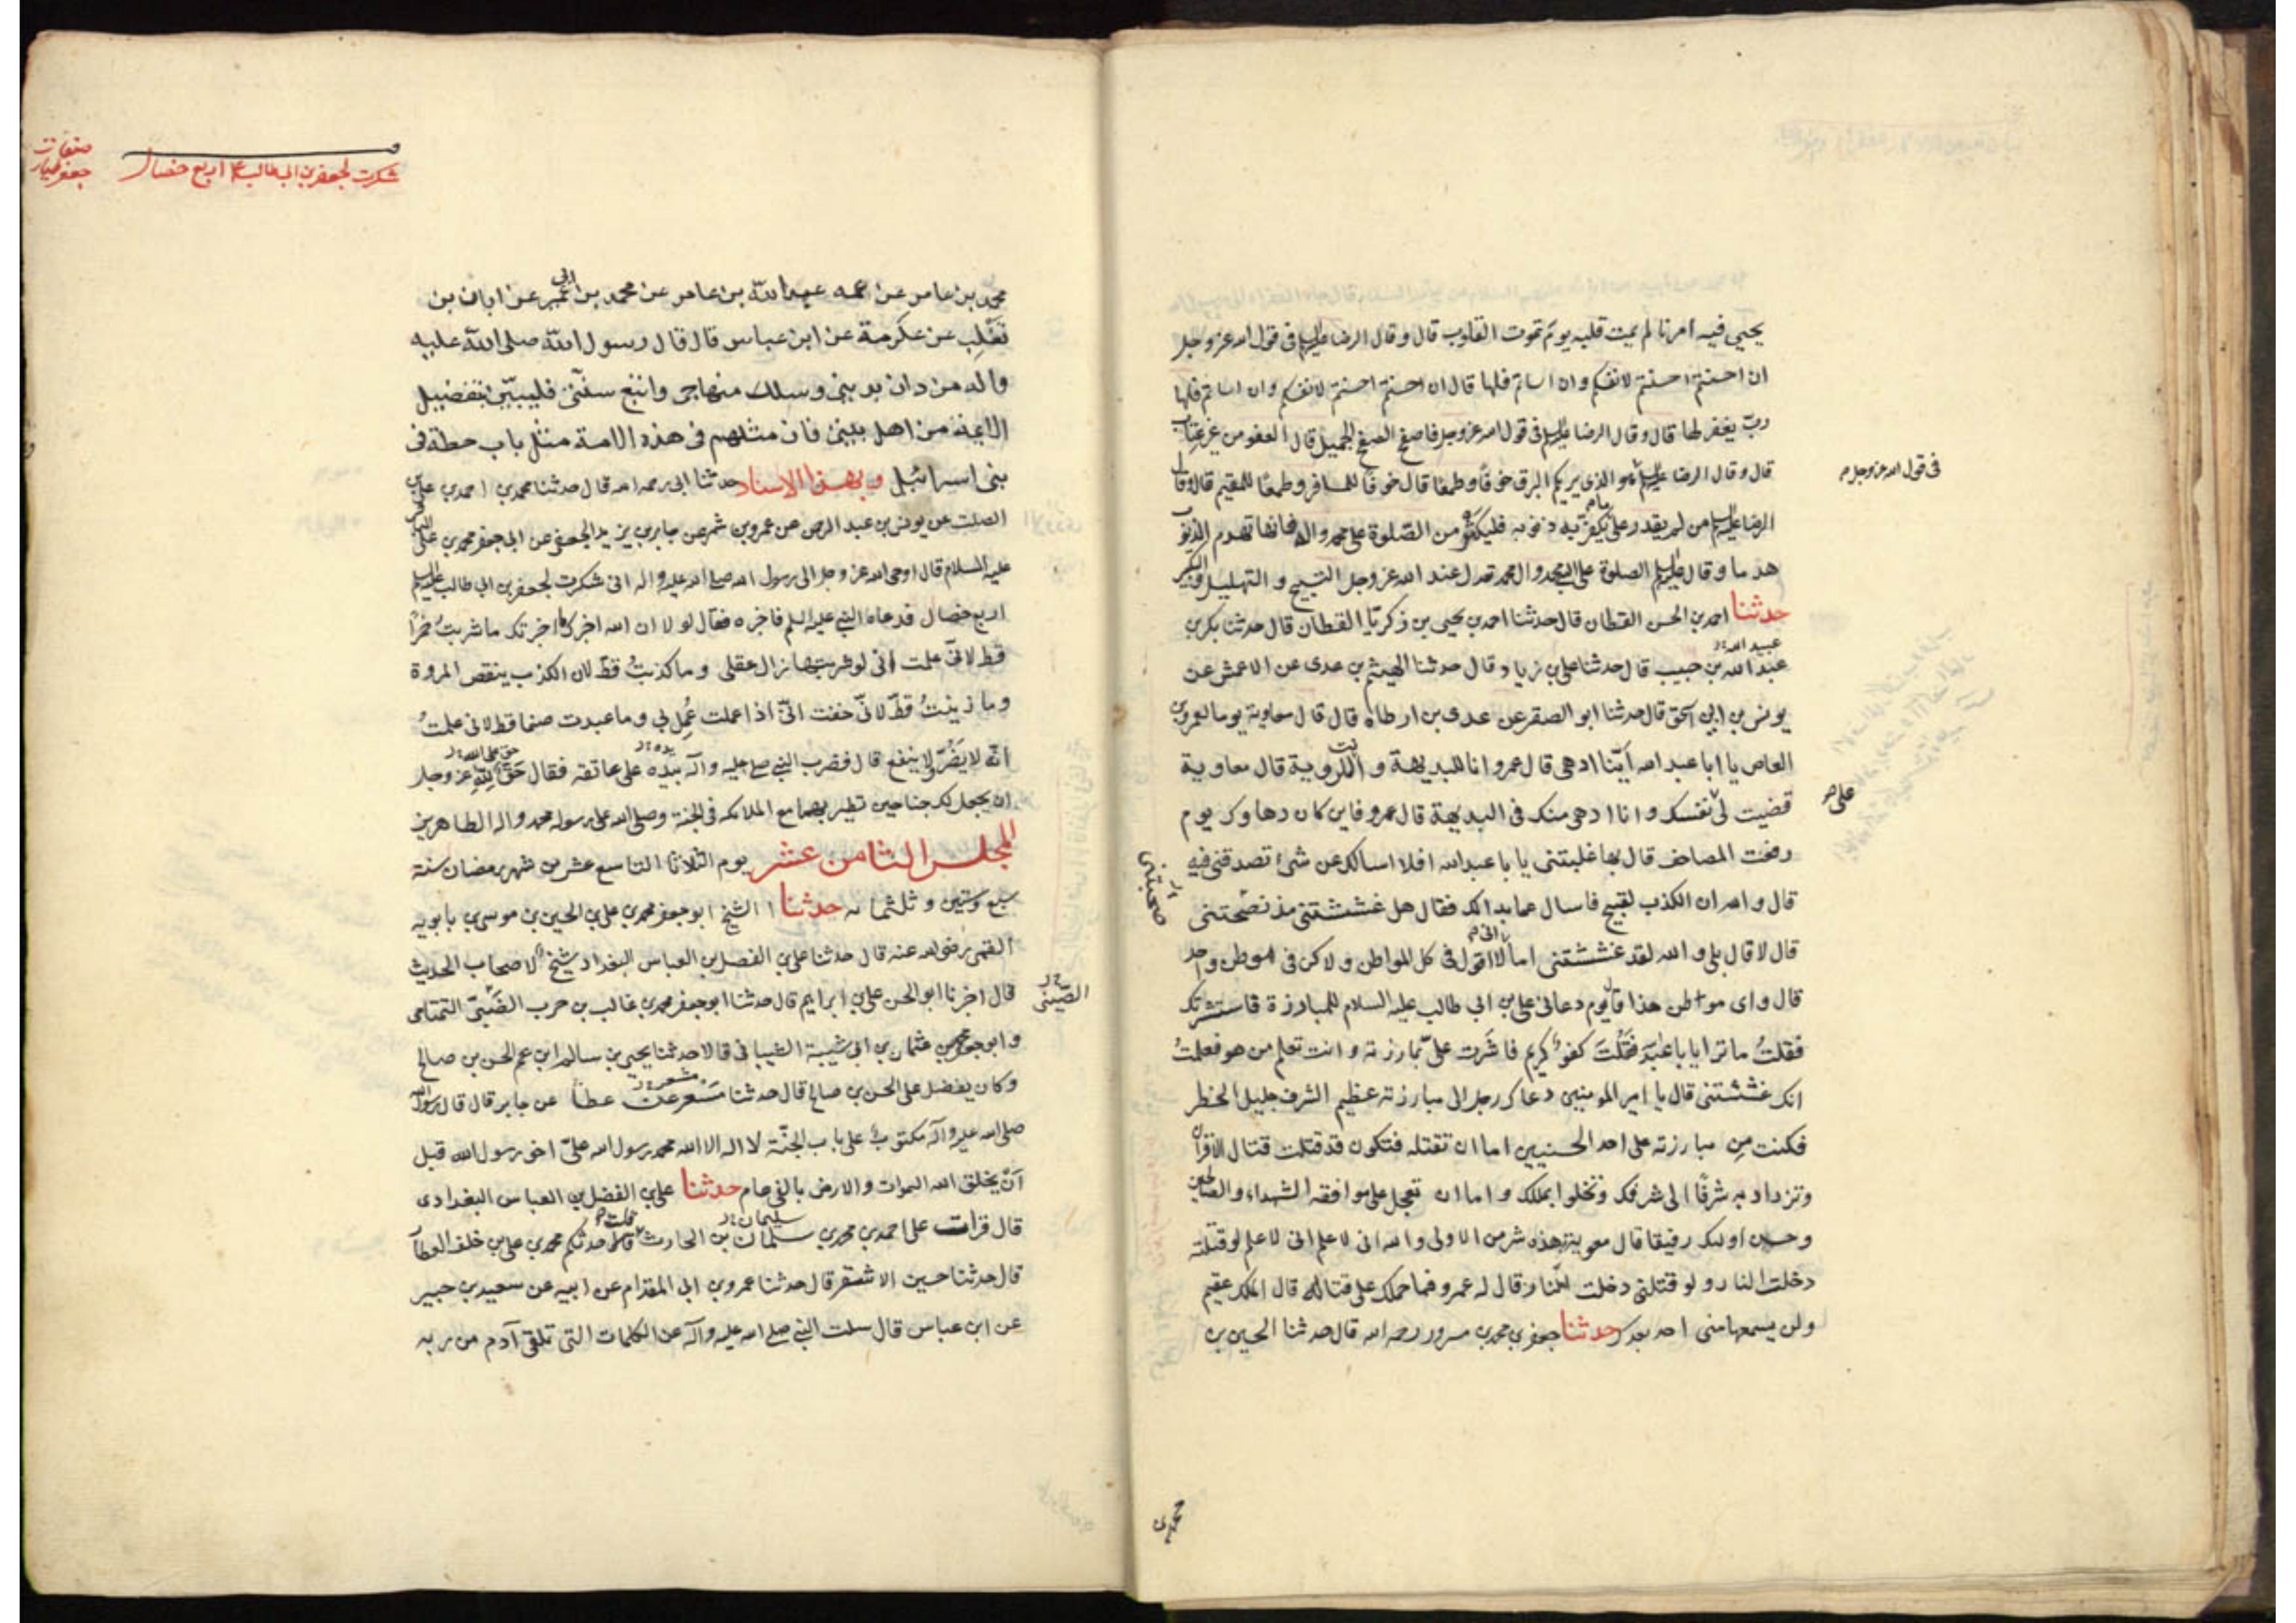 يحيي فيه امرنا لم يمت قلبه يوم تموت القلوب قال وقال الرضا عليه السلم في قول الله عز وجل
ان احسنتم احسنتم لانفسكم وان اساتم فلها قال ان احسنتم احسنتم لانفسكم وان اساتم فلها
ربّ يغفر لها قال وقال الرضا عليه السلم في قول الله عز وجل فاصفح الصفح الجميل قال العفو من غير عتاب
قال وقال الرضا عليه السلم هو الذي يريكم البرق خوفًا وطمعًا قال خوفًا للمسافر وطمعًا للمقيم قال وقال
في قول الله عز وجل م
الرضا عليه السلم من لم يقدر على ما يكفّر به ذنوبه فليكثر من الصّلوة على محمد واله فانها تهدم الذنوب
هدما وقال عليه السلم الصلوة على محمد وال محمد تعدل عند الله عز وجل التسبيح والتهليل والتكبير
حدثنا احمد بن الحسن القطان قال حدثنا احمد بن يحيى بن زكريّا القطان قال حدثنا بكر بن
عبيد الله
عبد الله بن حبيب قال حدثنا علي بن زياد قال حدثنا الهيثم بن عدي عن الاعمش عن
يونس بن ابي اسحق قال حدثنا ابو الصقر عن عدي بن ارطاه قال قال معاوية يوما لعمرو بن
العاص يا ابا عبد الله أيّنا ادهى قال عمرو انا للبديهة وانت للروية قال معاوية
قضيت لي على نفسك وانا ادهى منك في البديهة قال عمرو فاين كان دهاوك يوم
رفعت المصاحف قال بها غلبتني يا با عبد الله افلا اسالك عن شئ تصدقني فيه
قال والله ان الكذب لقبيح فاسال عما بدا لك فقال هل غششتني مذ نصحتني
صحبتني
قال لا قال بلى والله لقد غششتني اما اني لا اقول في كل المواطن ولاكن في موطن واحد
قال واى موطن هذا قال يوم دعاني علي بن ابي طالب عليه السلام للمبارزة فاستشرتك
فقلتُ ما ترا يا با عبد الله فقلتَ كفوٌ كريم فاشرت علىّ بمبارزته وانت تعلم من هو فعلمتُ
انك غششتني قال يا امير المومنين دعاك رجل الى مبارزته عظيم الشرف جليل الخطر
فكنت من مبارزته على احد الحسنيين اما ان تقتله فتكون قد قتلت قتال الاقران
وتزداد به شرفًا الى شرفك وتخلوا بملكك واما ان تعجل على موافقة الشهداء والصالحين
وحسن اوليك رفيقا قال معوية هذه شر من الاولى والله اني لا علم اني لا علم لو قتلته
دخلت النار ولو قتلني دخلت النار قال له عمرو فما حملك على قتاله قال الملك عقيم
ولن يسمعها مني احد بعدك حدثنا جعفر بن محمد بن مسرور رحمه الله قال حدثنا الحسين بن
محمد بن
صفات
جعفر طيار
شكرت لجعفر بن ابي طالب ع اربع خصال
محمد بن عامر عن عمه عبد الله بن عامر عن محمد بن ابي عمير عن ابان بن
تغلب عن عكرمة عن ابن عباس قال قال رسول الله صلى الله عليه
واله من دان بديني وسلك منهاجي واتبع سنّتي فليديّن بتفضيل
الايمة من اهل بيتي فان مثلهم في هذه الامة مثل باب حطة في
بني اسرائيل وبهذا الاسناد حدثنا ابي رحمه الله قال حدثنا محمد بن احمد بن علي بن
الصلت عن يونس بن عبد الرحمن عن عمرو بن شمر عن جابر بن يزيد الجعفي عن ابي جعفر محمد بن علي الباقر
عليه السلام قال اوحى الله عز وجل الى رسول الله صلى الله عليه واله اني شكرت لجعفر بن ابي طالب عليه السلم
اربع خصال فدعاه النبي عليه السلم فاخبره فقال لولا ان الله اخبرك ما اخبرتك ما شربتُ خمرًا
قط لانّي علمت انّي لو شربتها زال عقلي وما كذبتُ قط لان الكذب ينقص المروة
وما زنيتُ قطّ لانّي خفت انّي اذا عملت عُمل بي وما عبدت صنما قط لاني علمتُ
انّه لا يَضُرّ ولا ينفع قال فضرب النبي صلى عليه وآله بيده على عاتقه فقال حَقّ لله عز وجل
ان يجعل لك جناحين تطير بهما مع الملائكه في الجنة وصلى الله على رسوله محمد واله الطاهرين
المجلس الثامن عشر يوم الثلاثا التاسع عشر من شهر رمضان سنة
سبع وستين وثلثمائه حدثنا الشيخ ابو جعفر محمد بن علي بن الحسين بن موسى بن بابويه
القمي رضي الله عنه قال حدثنا علي بن الفضل بن العباس البغدادي شيخ لاصحاب الحديث
قال اخبرنا ابو الحسن علي بن ابراهيم قال حدثنا ابو جعفر محمد بن غالب بن حرب الضّبّي التمتامي
الضّبّيني
وابو جعفر محمد بن عثمان بن ابي شيبة الشيباني قالا حدثنا يحيى بن سالم ابن عم الحسن بن صالح
وكان يفضل على الحسن بن صالح قال حدثنا مسعر عن عطا عن جابر قال قال رسول الله
صلى الله عليه وآله مكتوب على باب الجنّة لا اله الا الله محمد رسول الله عليّ اخو رسول الله قبل
أن يخلق الله السموات والارض بالفي عام حدثنا علي بن الفضل بن العباس البغدادي
قال قرات على احمد بن محمد بن سليمان بن الحارث قال حدثكم محمد بن علي بن خلف العطار
قال حدثنا حسين الاشقر قال حدثنا عمرو بن ابي المقدام عن ابيه عن سعيد بن جبير
عن ابن عباس قال سئلت النبي صلى الله عليه وآله عن الكلمات التي تلقى آدم من ربه